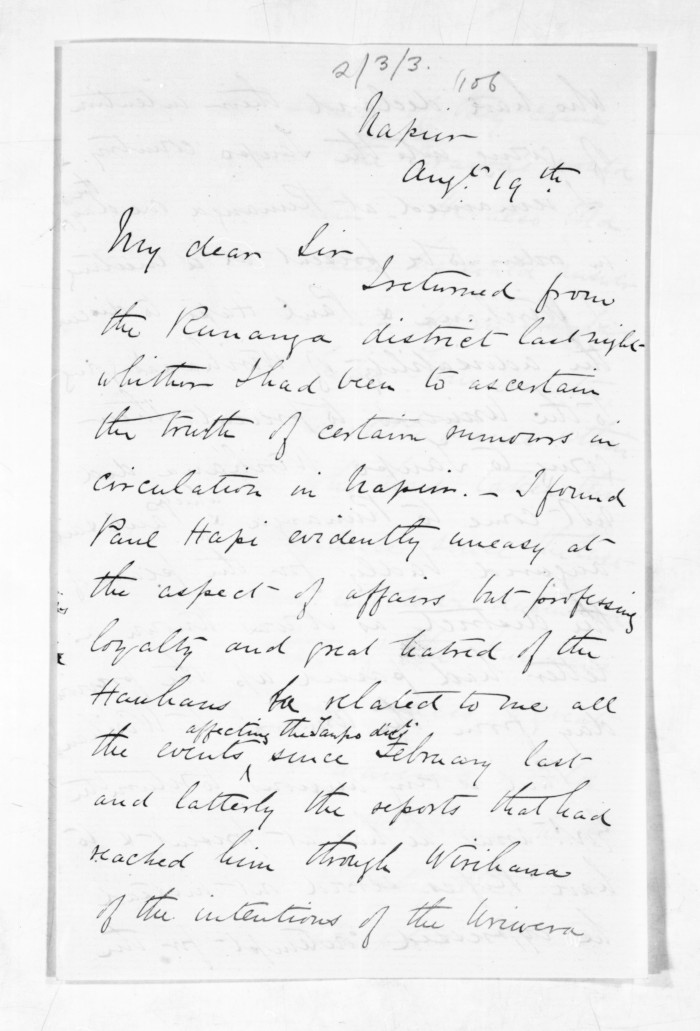 2/3/3.
106
Napier
Augt. 19th
My dear Sir
I returned from
the Runanga district last night
whither I had been to ascertain
the truth of certain rumours in
circulation in Napier. – I found
Paul Hapi evidently uneasy at
the aspect of affairs but professing
loyalty and great hatred of the
Hauhaus he related to me all
affecting the Taupo dist.
the events ^ since February last
and latterly the reports that had
reached him through Wirihana
of the intentions of the Uriwera